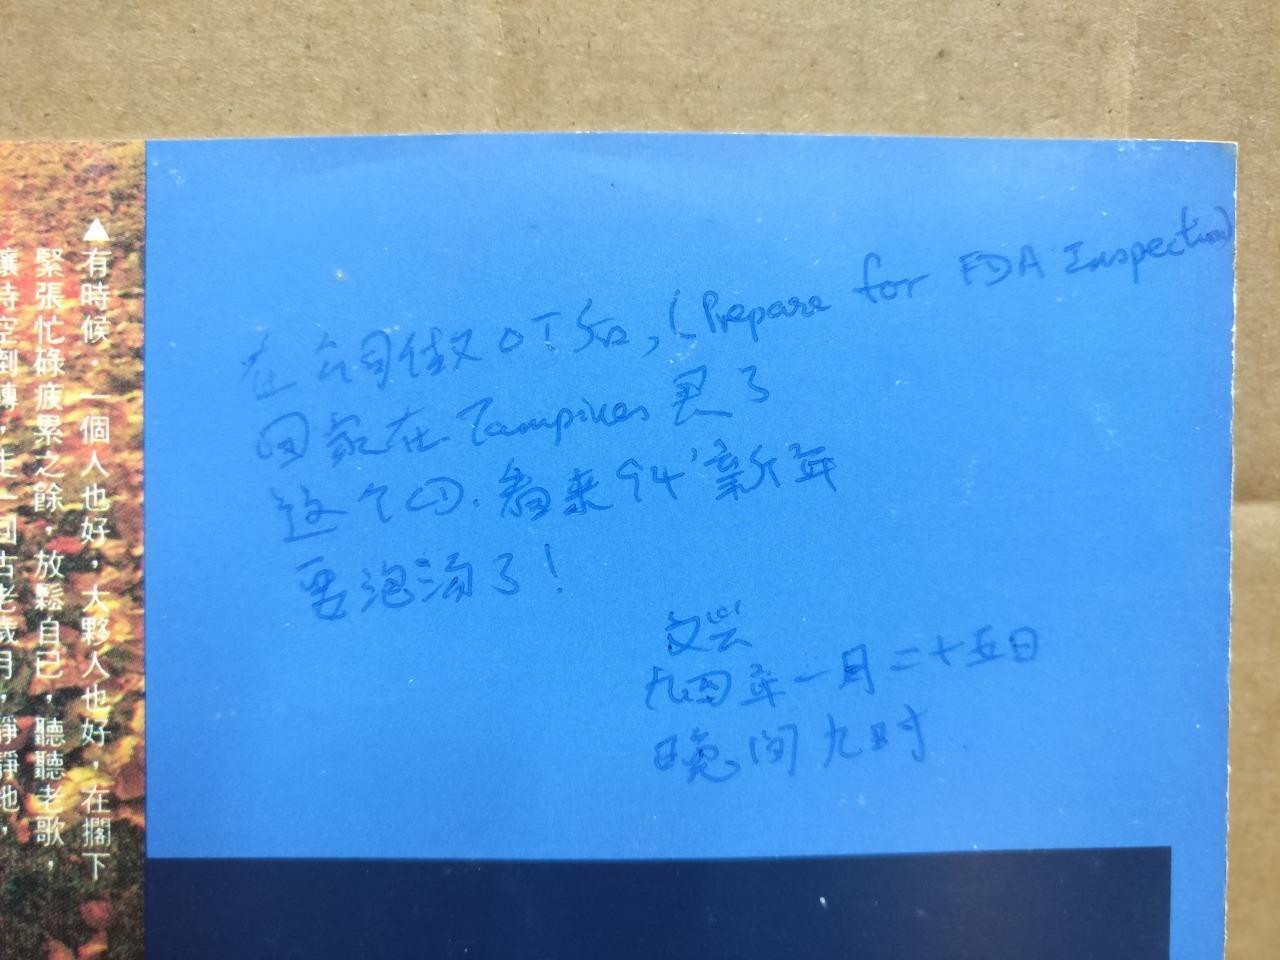 在公司做OT后,(Prepare for FDA Inspection)
回家在Tampines买了
这个CD.看来94'新年
要泡汤了!
文芸
九四年一月二十五日
晚间九时
▲有時候,一個人也好,大夥人也好,在擱下
緊張忙碌疲累之餘,放鬆自己,聽聽老歌,
讓時空倒轉,走一回古老歲月,靜靜地,